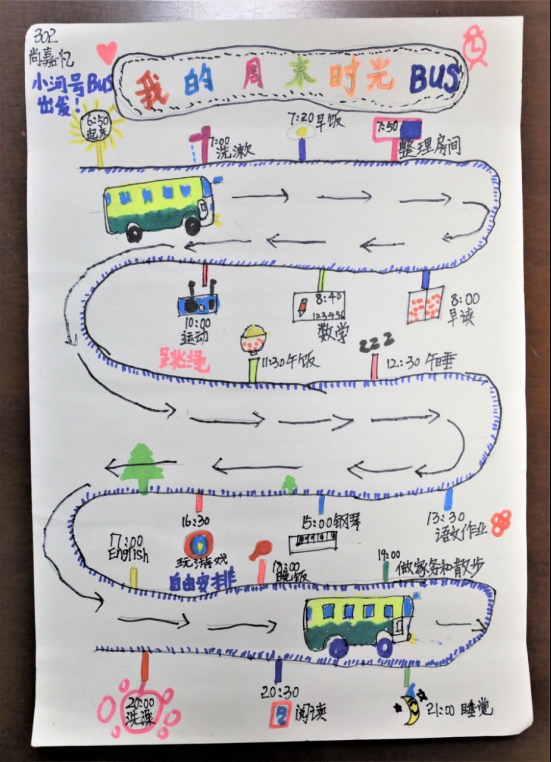 302
尚嘉忆
小河号BUS
出发!
我的周末时光BUS
6:50
起床
7:00
洗漱
7:20早饭
7:50
整理房间
8:00
早读
8:40
123456
数学
10:00
运动
跳绳
11:30午饭
ZZZ
12:30午睡
13:30
语文作业
15:00钢琴
16:30
玩游戏
自由安排
17:00
English
18:00
晚饭
19:00
做家务和散步
20:00
洗澡
20:30
阅读
21:00睡觉